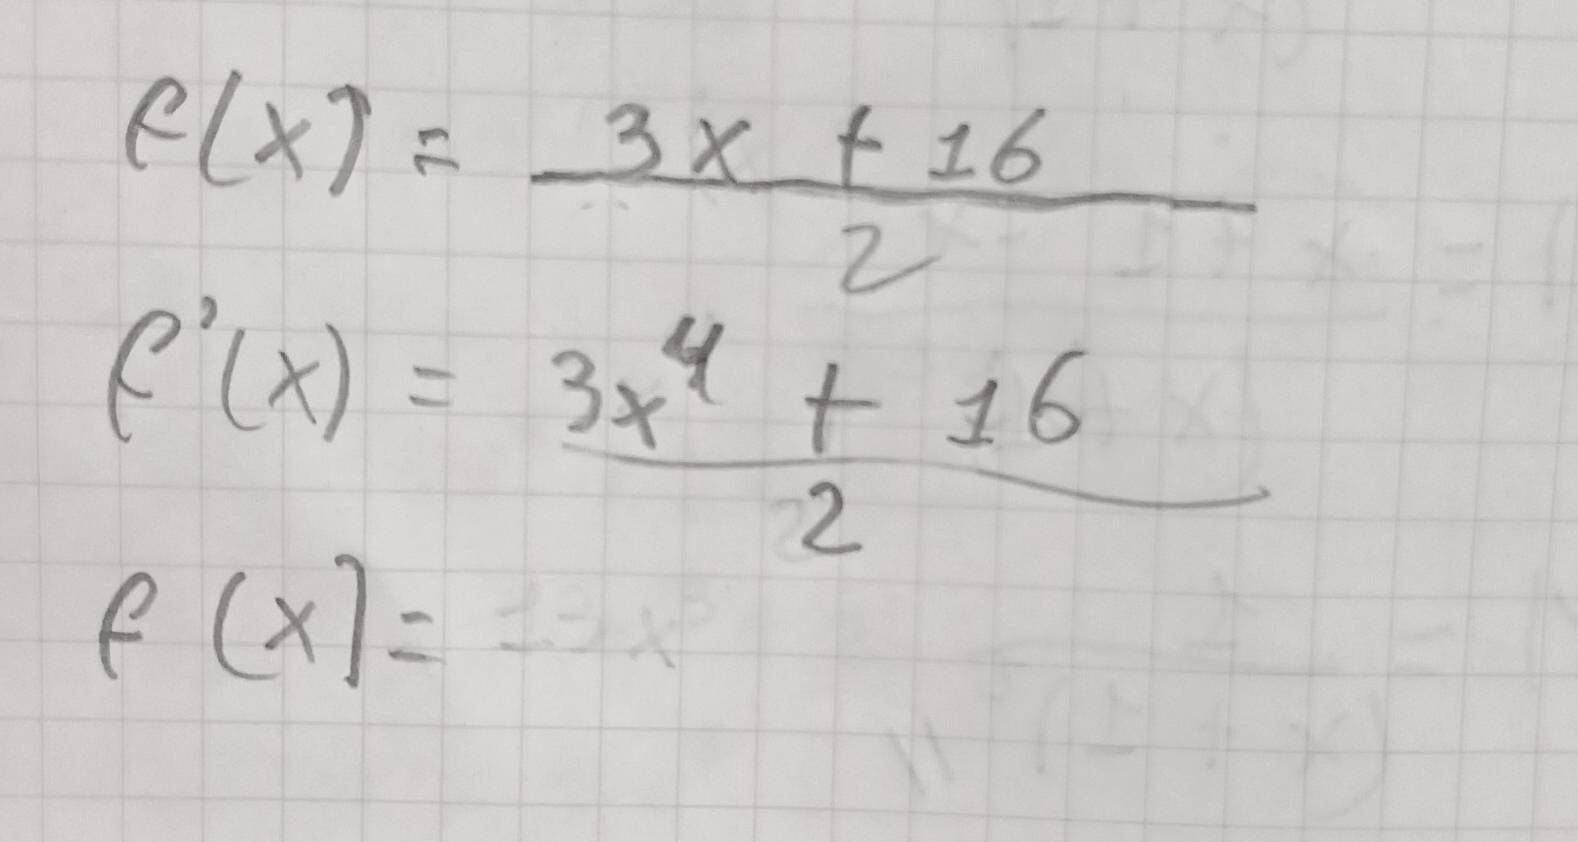 f(x) = 3x + 16
2
f'(x) = 3x⁴ + 16
2
f(x) =